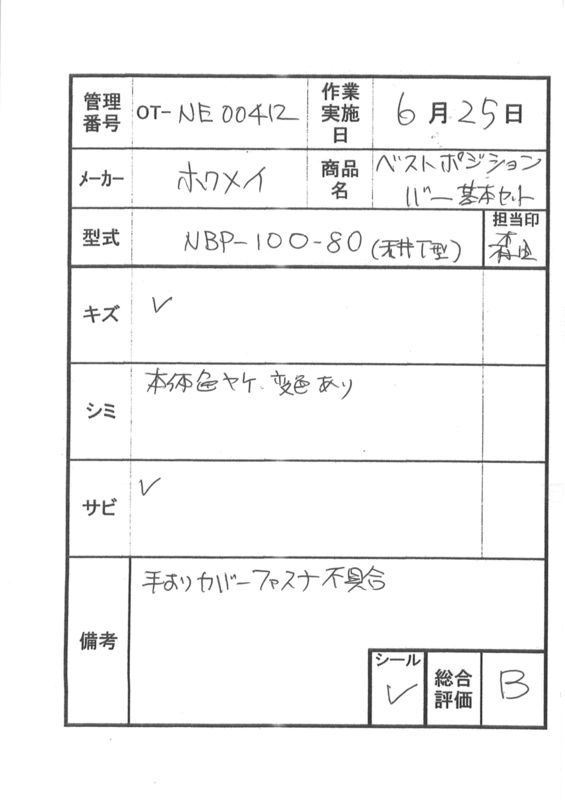 管理番号 OT-NE00412 作業実施日 6月25日
メーカー ホクメイ 商品名 ベストポジション
バー基本セット
型式 NBP-100-80(天井T型) 担当印
キズ ✓
シミ 本体色ヤケ、変色あり
サビ ✓
備考 手すりカバーファスナ不具合
シール ✓ 総合評価 B